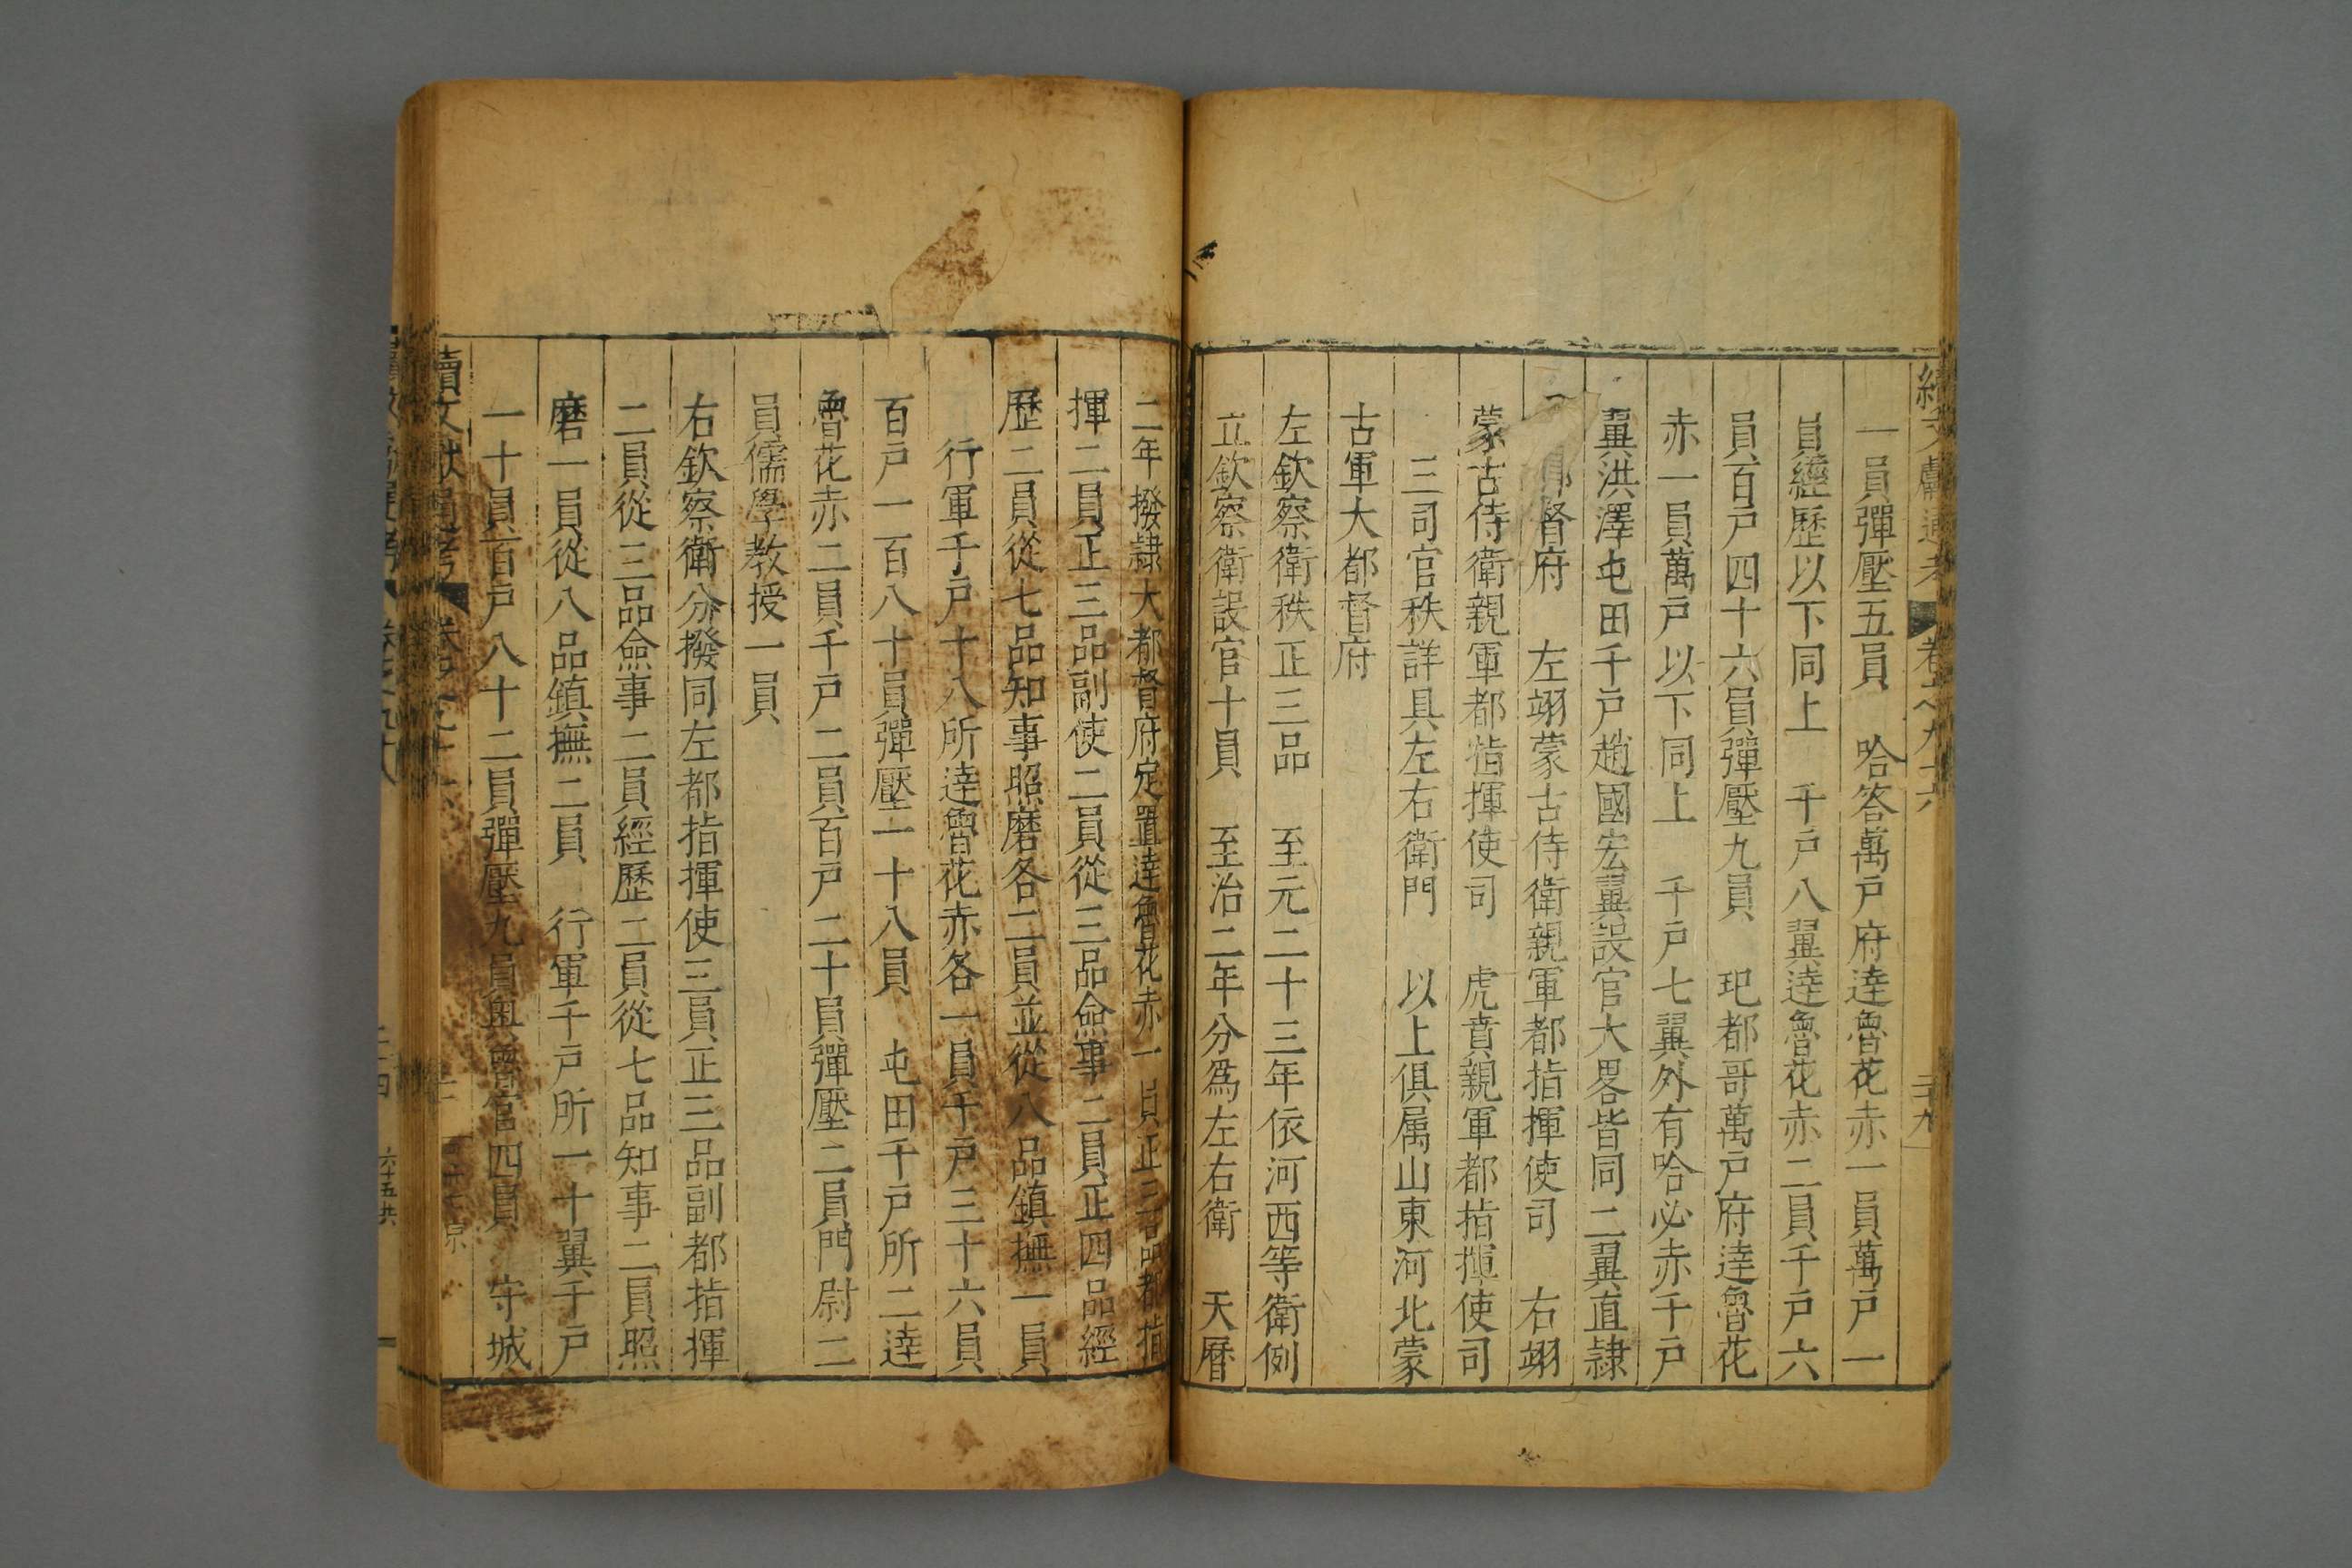 一員彈壓五員　哈答萬戶府逹魯花赤一員萬戶一
員經歷以下同上　千戶八翼逹魯花赤二員千戶六
員百戶四十六員彈壓九員　玘都哥萬戶府逹魯花
赤一員萬戶以下同上　千戶七翼外有哈必赤千戶
翼洪澤屯田千戶趙國宏翼設官大畧皆同二翼直隷
督府　左翊蒙古侍衛親軍都指揮使司　右翊
蒙古侍衛親軍都指揮使司　虎賁親軍都指揮使司
三司官秩詳具左右衛門　以上俱属山東河北蒙
古軍大都督府
左欽察衛秩正三品　至元二十三年依河西等衛例
立欽察衛設官十員　至治二年分爲左右衛　天曆
二年撥隷大都督府定置逹魯花赤一員正三品都指
揮二員正三品副使二員從三品僉事二員正四品經
歷二員從七品知事照磨各二員並從八品鎮撫一員
行軍千戶十八所逹魯花赤各一員千戶三十六員
百戶一百八十員彈壓一十八員　屯田千戶所二逹
魯花赤二員千戶二員百戶二十員彈壓二員門尉二
員儒學教授一員
右欽察衛分撥同左都指揮使三員正三品副都指揮
二員從三品僉事二員經歷二員從七品知事二員照
磨一員從八品鎮撫二員　行軍千戶所一十翼千戶
一十員百戶八十二員彈壓九員奥魯官四員　守城